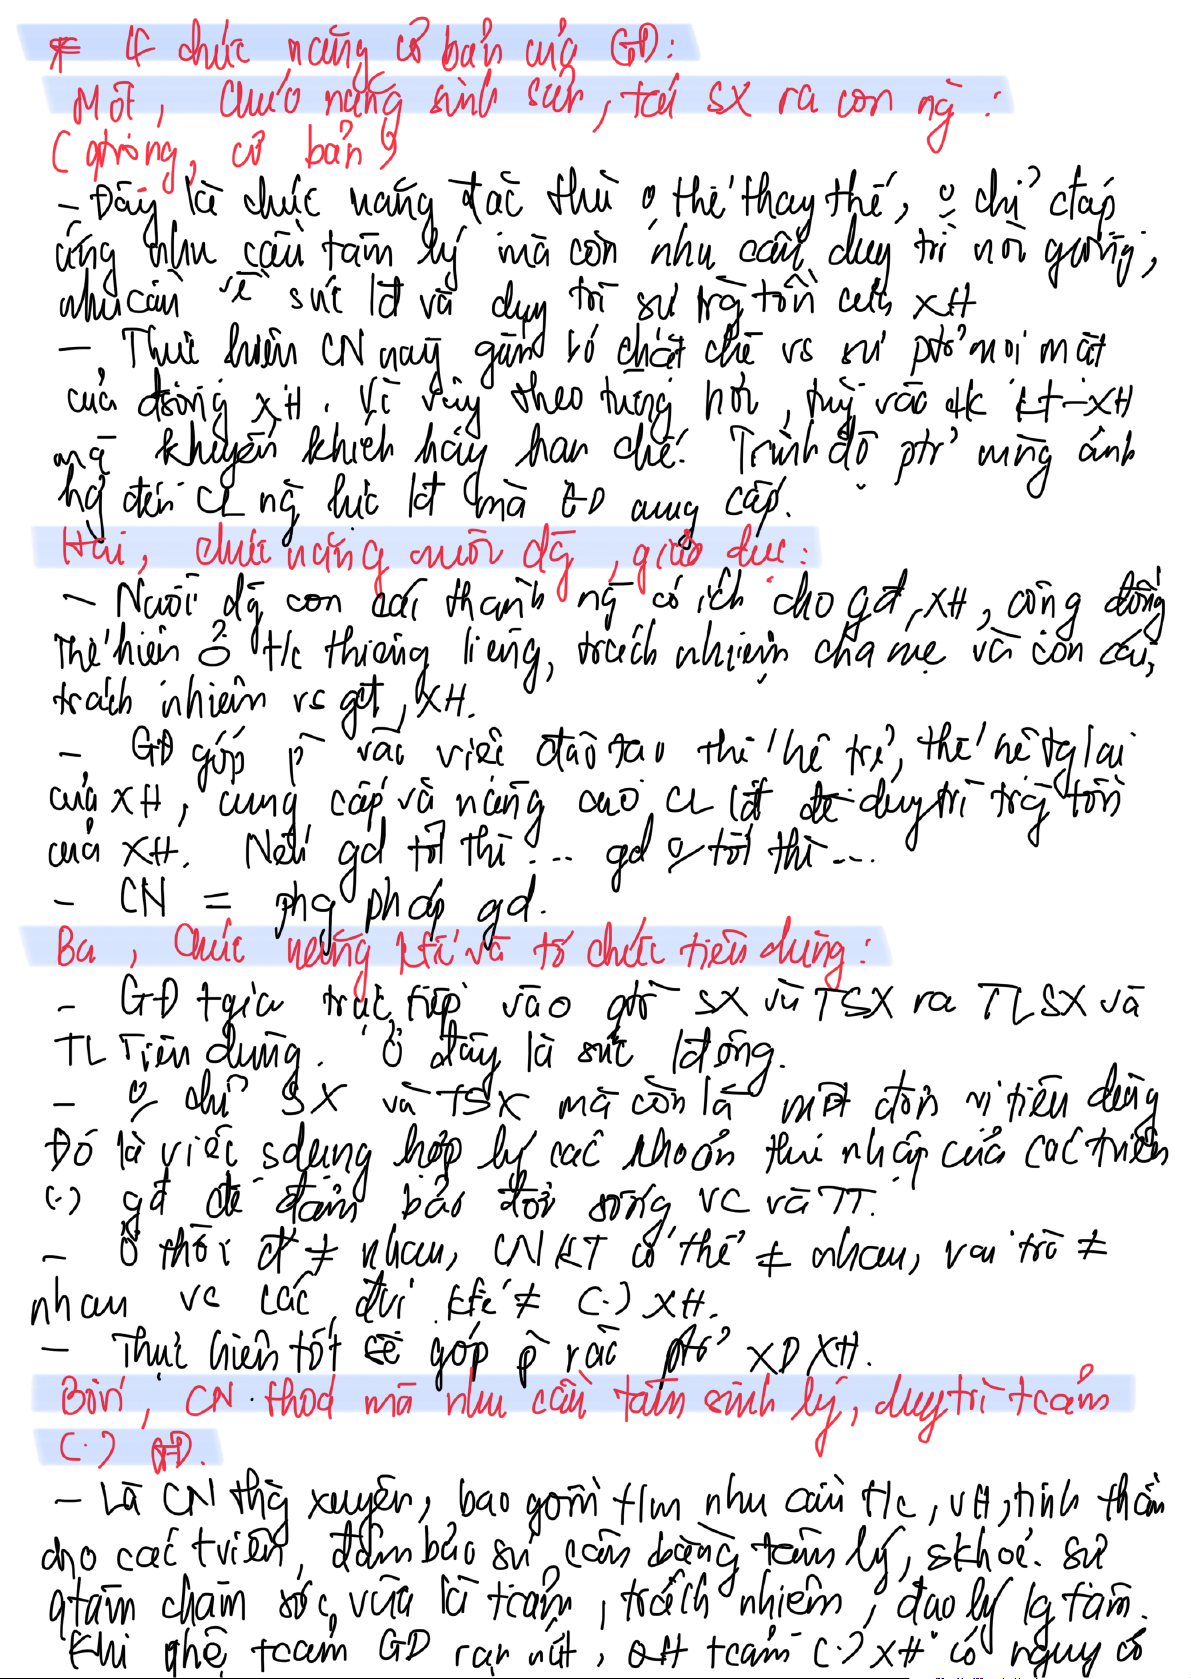 * 4 chức năng cơ bản của GĐ:
Một, chức năng sinh sản, tái sx ra con ng̀ :
(qtrọng, cơ bản)
- Đây là chức năng đặc thù 0 thể thay thế, 0 chỉ đáp
ứng nhu cầu tâm lý mà còn nhu cầu duy trì nòi giống,
nhu cầu về sức lđ và duy trì sự trg tồn của XH
- Thực hiện CN này gắn bó chặt chẽ vs sự ptr mọi mặt
của đsống XH. Vì vậy theo từng nơi, tùy vào đk kt-XH
mà khuyến khích hay hạn chế. Trình độ ptr cũng ảnh
hg đến CL ng lực lđ mà GĐ cung cấp.
Hai, chức năng nuôi dg, giáo dục:
- Nuôi dg con cái thành ng có ích cho gđ, XH, cộng đồng
Thể hiện ở t/c thiêng liêng, trách nhiệm cha mẹ và con cái,
trách nhiệm vs gđ, XH.
- GĐ góp p vào việc đào tạo thế hệ trẻ, thế hệ tg lai
của XH, cung cấp và nâng cao CL lđ để duy trì trg tồn
của XH. Nếu gd tốt thì ... gd 0 tốt thì ...
- CN = phg pháp gd.
Ba, Chức năng ktế và tổ chức tiêu dùng:
- GĐ tgia trực tiếp vào qtr SX và TSX ra TLSX và
TL Tiêu dùng. Ở đây là sức lđộng.
- 0 chỉ SX và TSX mà còn là một đơn vị tiêu dùng
Đó là việc sdụng hợp lý các khoản thu nhập của các tviên
(.) gđ để đảm bảo đời sống VC và TT.
- Ở thời đ ≠ nhau, CNKT có thể ≠ nhau, vai trò ≠
nhau vs các đvị ktế ≠ (.) XH.
- Thực hiện tốt sẽ góp p vào ptr XD XH.
Bốn, CN thoả mã nhu cầu tâm sinh lý, duy trì tcảm
(.) GĐ.
- Là CN thg xuyên, bao gồm t/m nhu cầu t/c, VH, tinh thần
cho các tviên, đảm bảo sự cân bằng tâm lý, skhoẻ. Sự
qtâm chăm sóc vừa là tcảm, trách nhiệm, đạo lý lg tâm.
Khi qhệ tcảm GĐ rạn nứt, QH tcảm (.) XH có nguy cơ